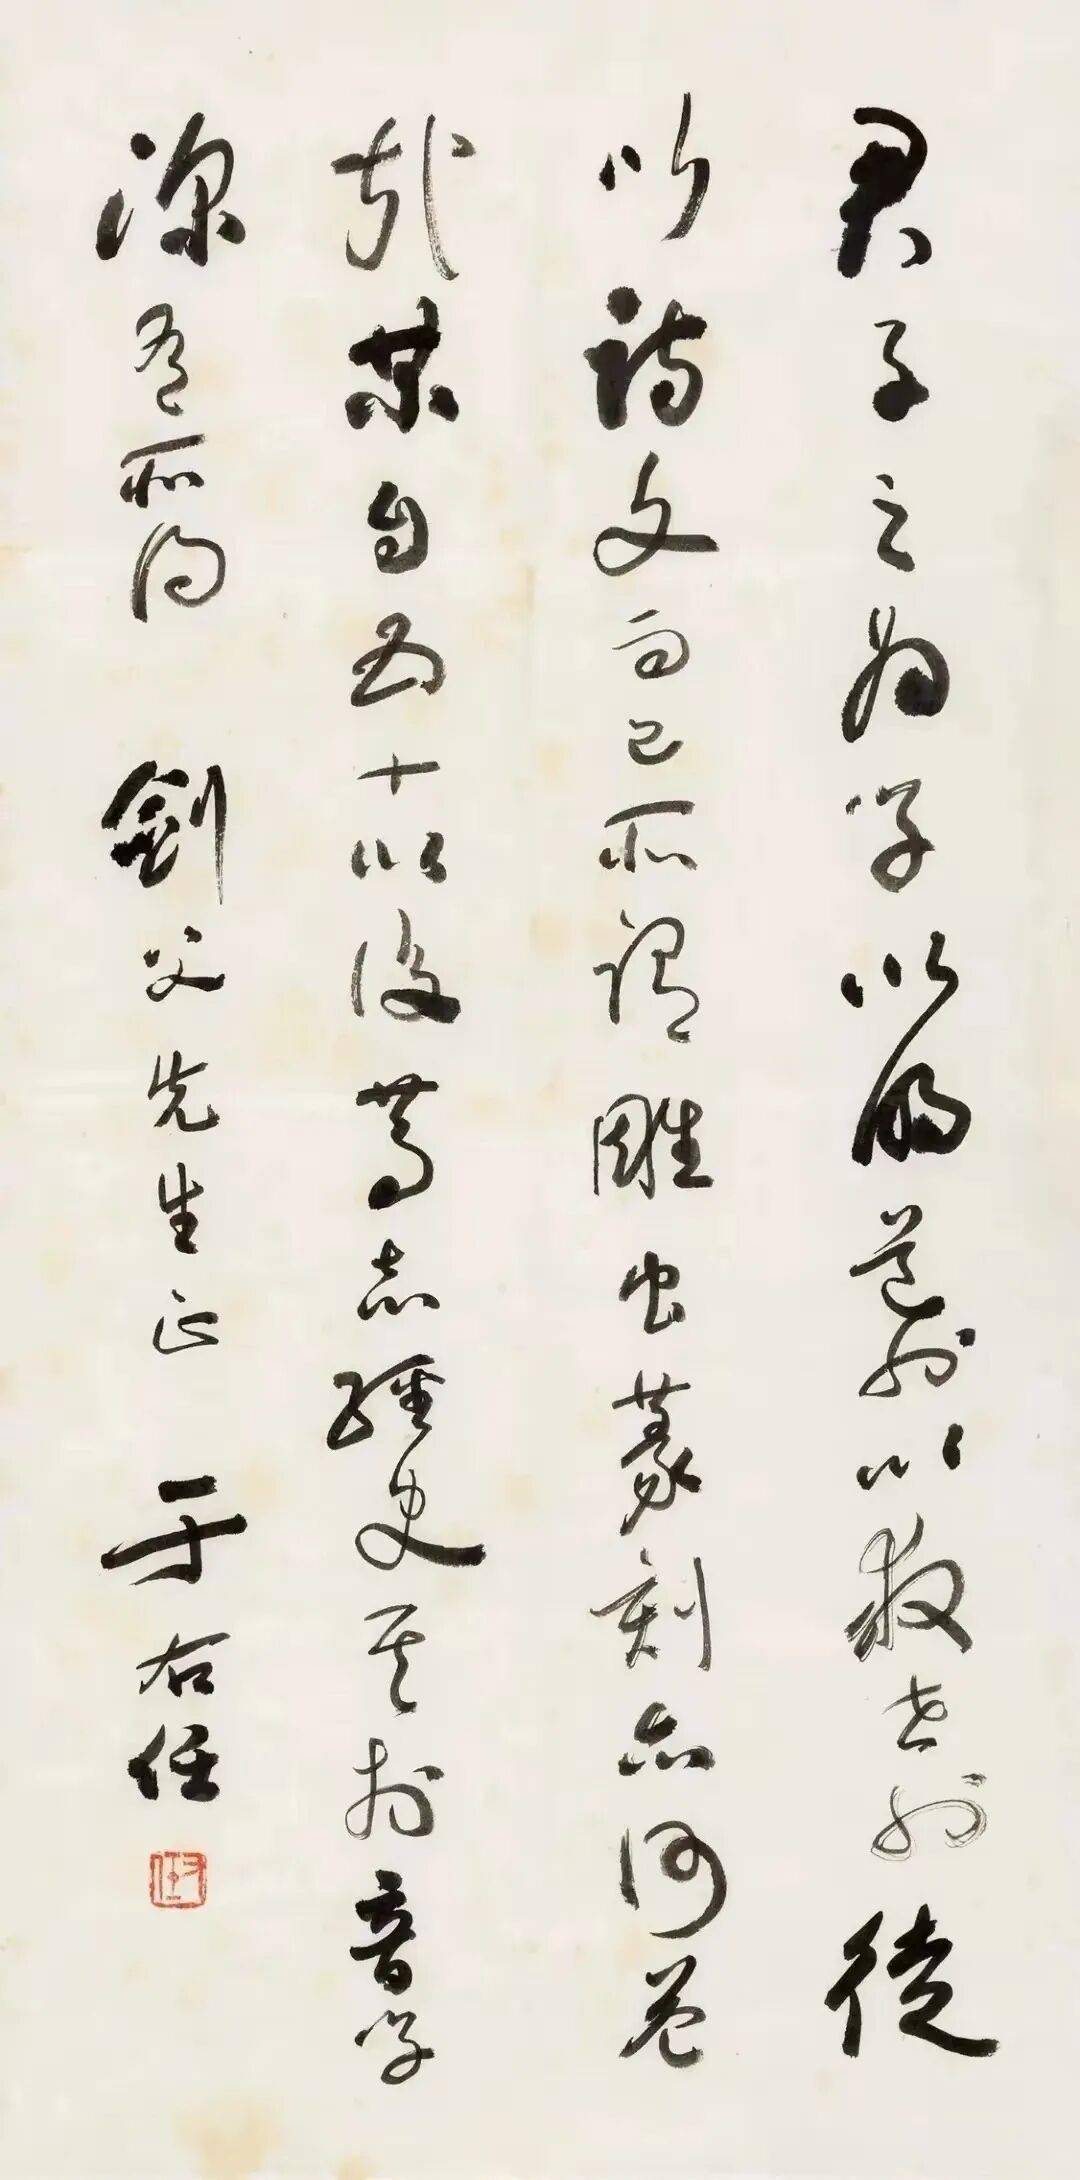 君子之為學以明道也以救世也徒
以詩文而已所謂雕虫篆刻亦何益
哉某自五十以後篤志經史其於音學
深有所得 劍父先生正 于右任
右任